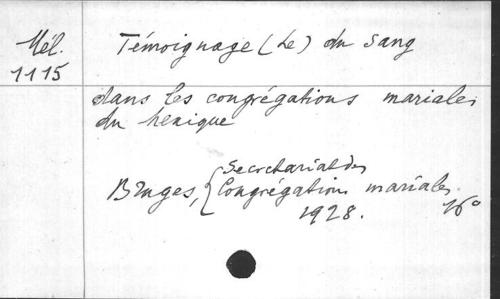 Mél.
1115
Témoignage (Le) du Sang
dans les congrégations mariales
du Mexique
Bruges, { Secrétariat des
Congrégations mariales.
1928. 16°